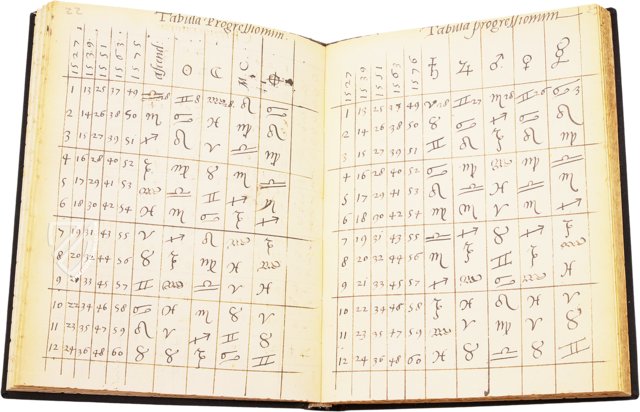 22
Tabula Progressionum
1527 1539 1551 1563 1575 Ascend ☉ ☽ M.C ⊕
1 13 25 37 49 ♎ ♊ ♒ ♌ ♋
2 14 26 38 50 ♏ ♋ ♓ ♍ ♌
3 15 27 39 51 ♐ ♌ ♈ ♎ ♍
4 16 28 40 52 ♑ ♍ ♉ ♏ ♎
5 17 29 41 53 ♒ ♎ ♊ ♐ ♏
6 18 30 42 54 ♓ ♏ ♋ ♑ ♐
7 19 31 43 55 ♈ ♐ ♌ ♒ ♑
8 20 32 44 56 ♉ ♑ ♍ ♓ ♒
9 33 45 57 ♊ ♒ ♎ ♈ ♓
10 22 34 46 58 ♋ ♓ ♏ ♉ ♈
11 23 35 47 59 ♌ ♈ ♐ ♊ ♉
12 24 36 48 60 ♍ ♉ ♑ ♋ ♊
Tabula progressionum
1527 1539 1551 1563 ♄ ♃ ♂ ♀ ☿
1 13 25 37 49 ♈ ♊ ♏ ♊ ♋
2 14 26 38 50 ♉ ♋ ♐ ♋ ♌
3 15 27 39 51 ♊ ♌ ♑ ♌ ♍
4 16 28 40 52 ♋ ♍ ♒ ♍ ♎
5 17 29 41 53 ♌ ♎ ♓ ♎ ♏
6 18 30 42 54 ♍ ♏ ♈ ♏ ♐
7 19 31 43 55 ♎ ♐ ♉ ♐ ♑
8 20 32 44 56 ♏ ♑ ♊ ♑ ♒
9 21 33 45 57 ♐ ♒ ♋ ♒ ♓
10 22 34 46 58 ♑ ♓ ♌ ♓ ♈
11 23 35 47 59 ♒ ♈ ♍ ♈ ♉
12 24 36 48 60 ♓ ♉ ♎ ♉ ♊